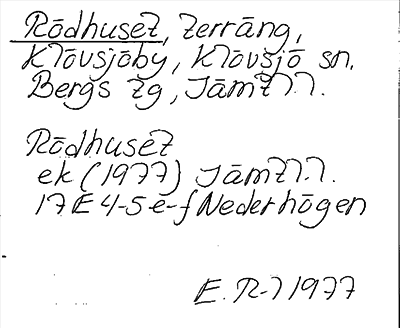 Rödhuset, terräng,
Klövsjöby, Klövsjö sn,
Bergs tg, Jämtl.
Rödhuset
ek (1977) Jämtl.
17E 4-5 e-f Nederhögen
E. R-l 1977